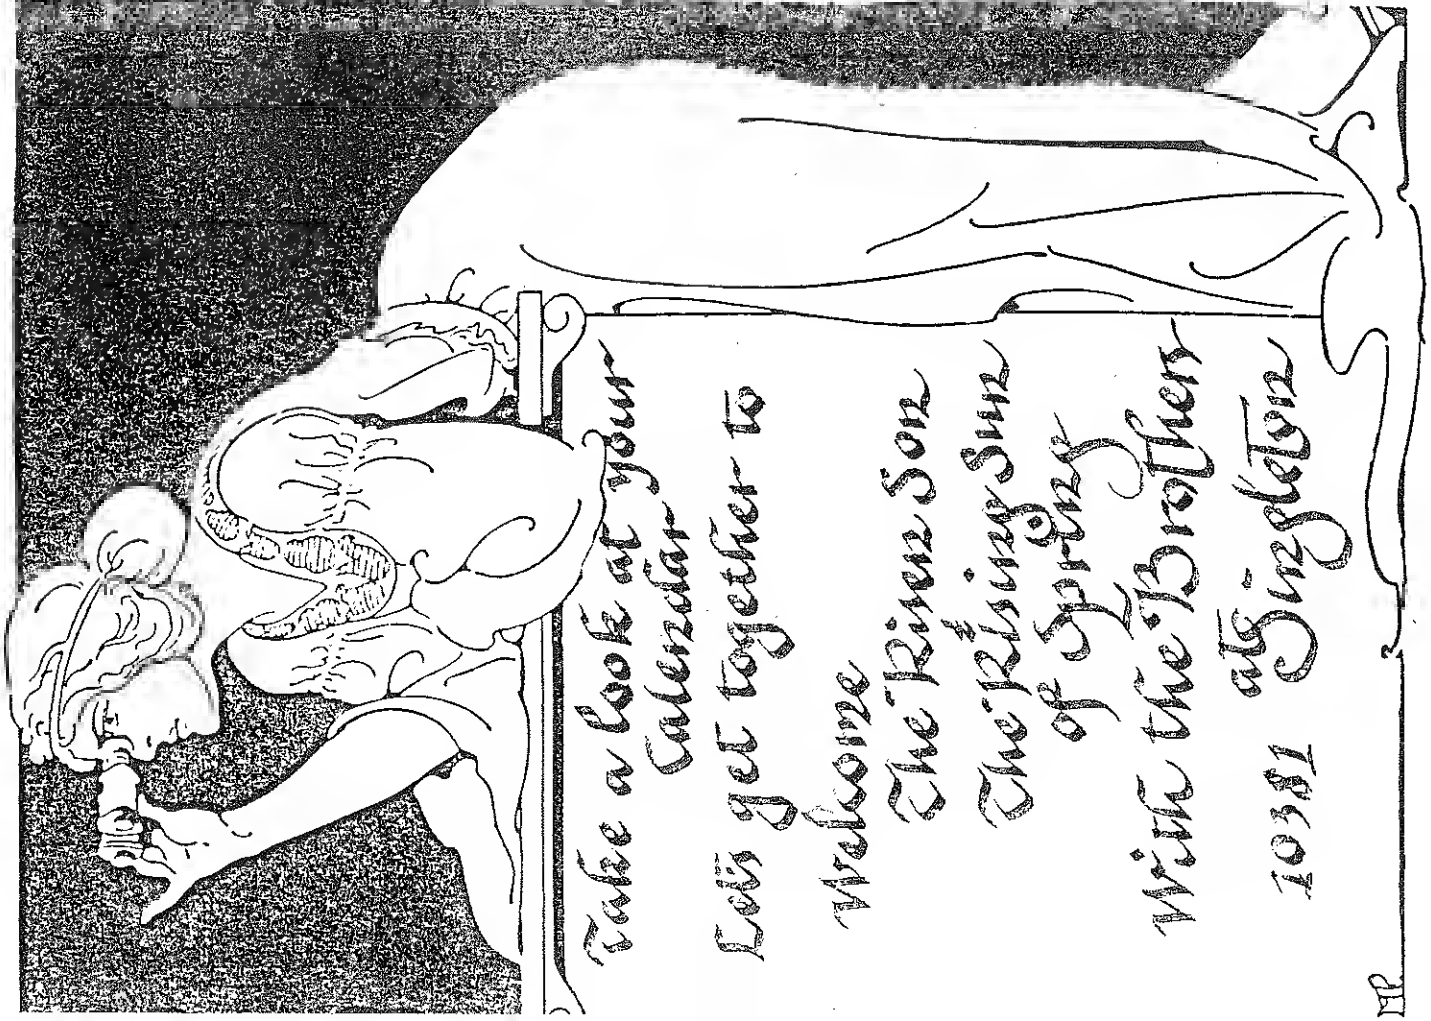 Take a look at your
Calendar
Let's get together to
Welcome
The Risen Son
The Rising Sun
of Spring
With the Brothers
10381 at Singleton